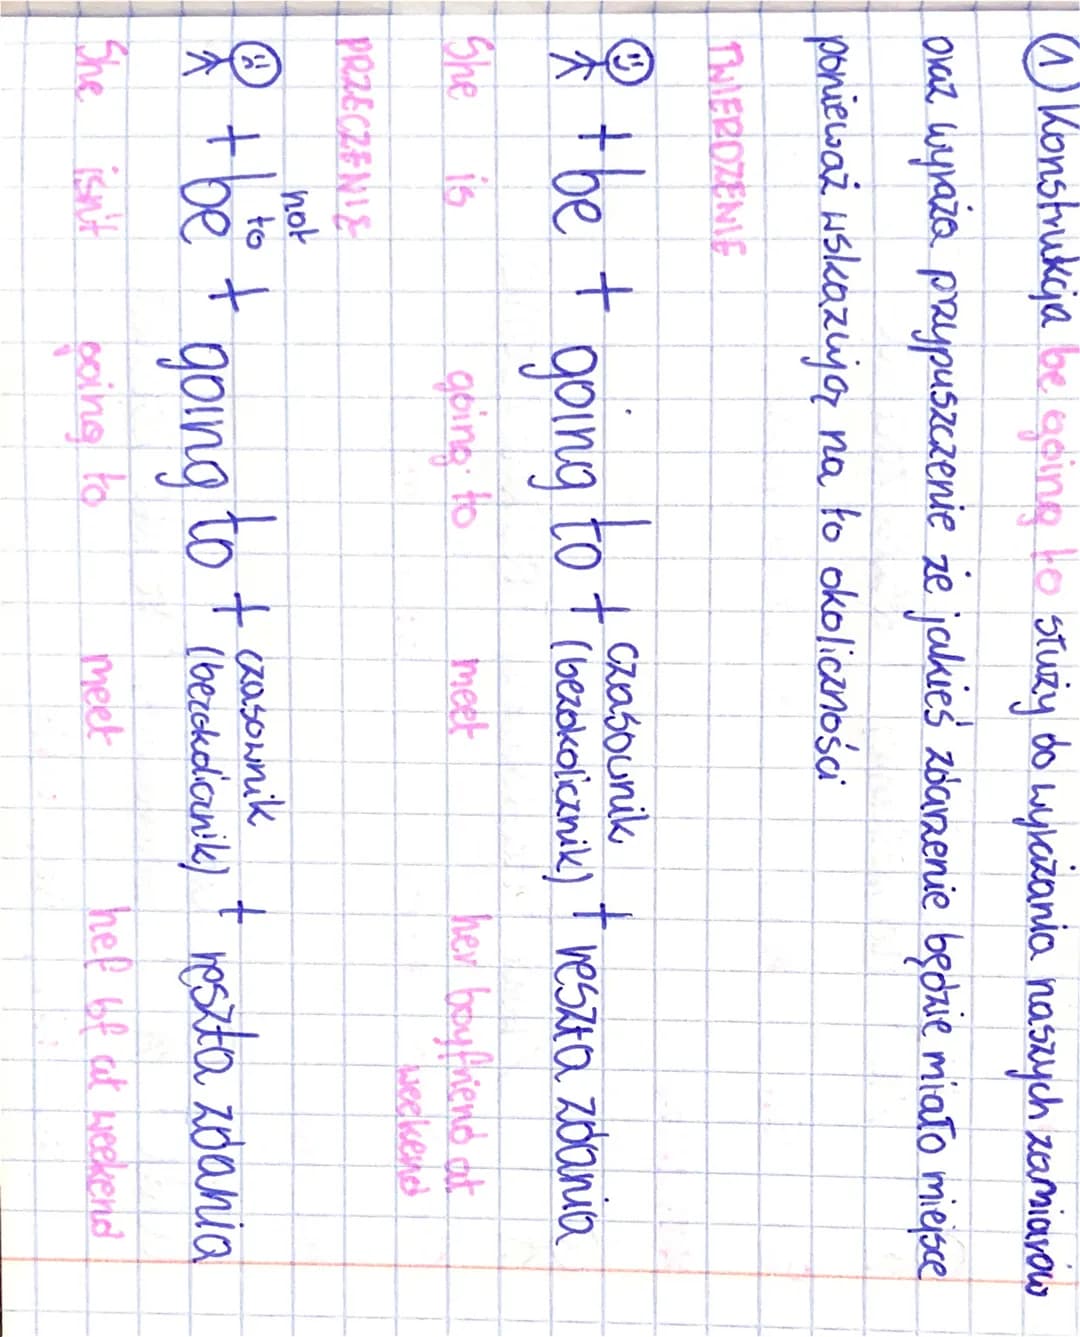 ① Konstrukcja be going to służy do wyrażania naszych zamiarów
oraz wyraża przypuszczenie że jakieś zdarzenie będzie miało miejsce
ponieważ wskazują na to okoliczności
TWIERDZENIE
+ be + going to + czasownik (bezokolicznik) + reszta zdania
She is going to meet her boyfriend at
weekend
PRZECZENIE
not
to
+ be + going to + czasownik (bezokolicznik) + reszta zdania
She isn't going to meet her bf at weekend